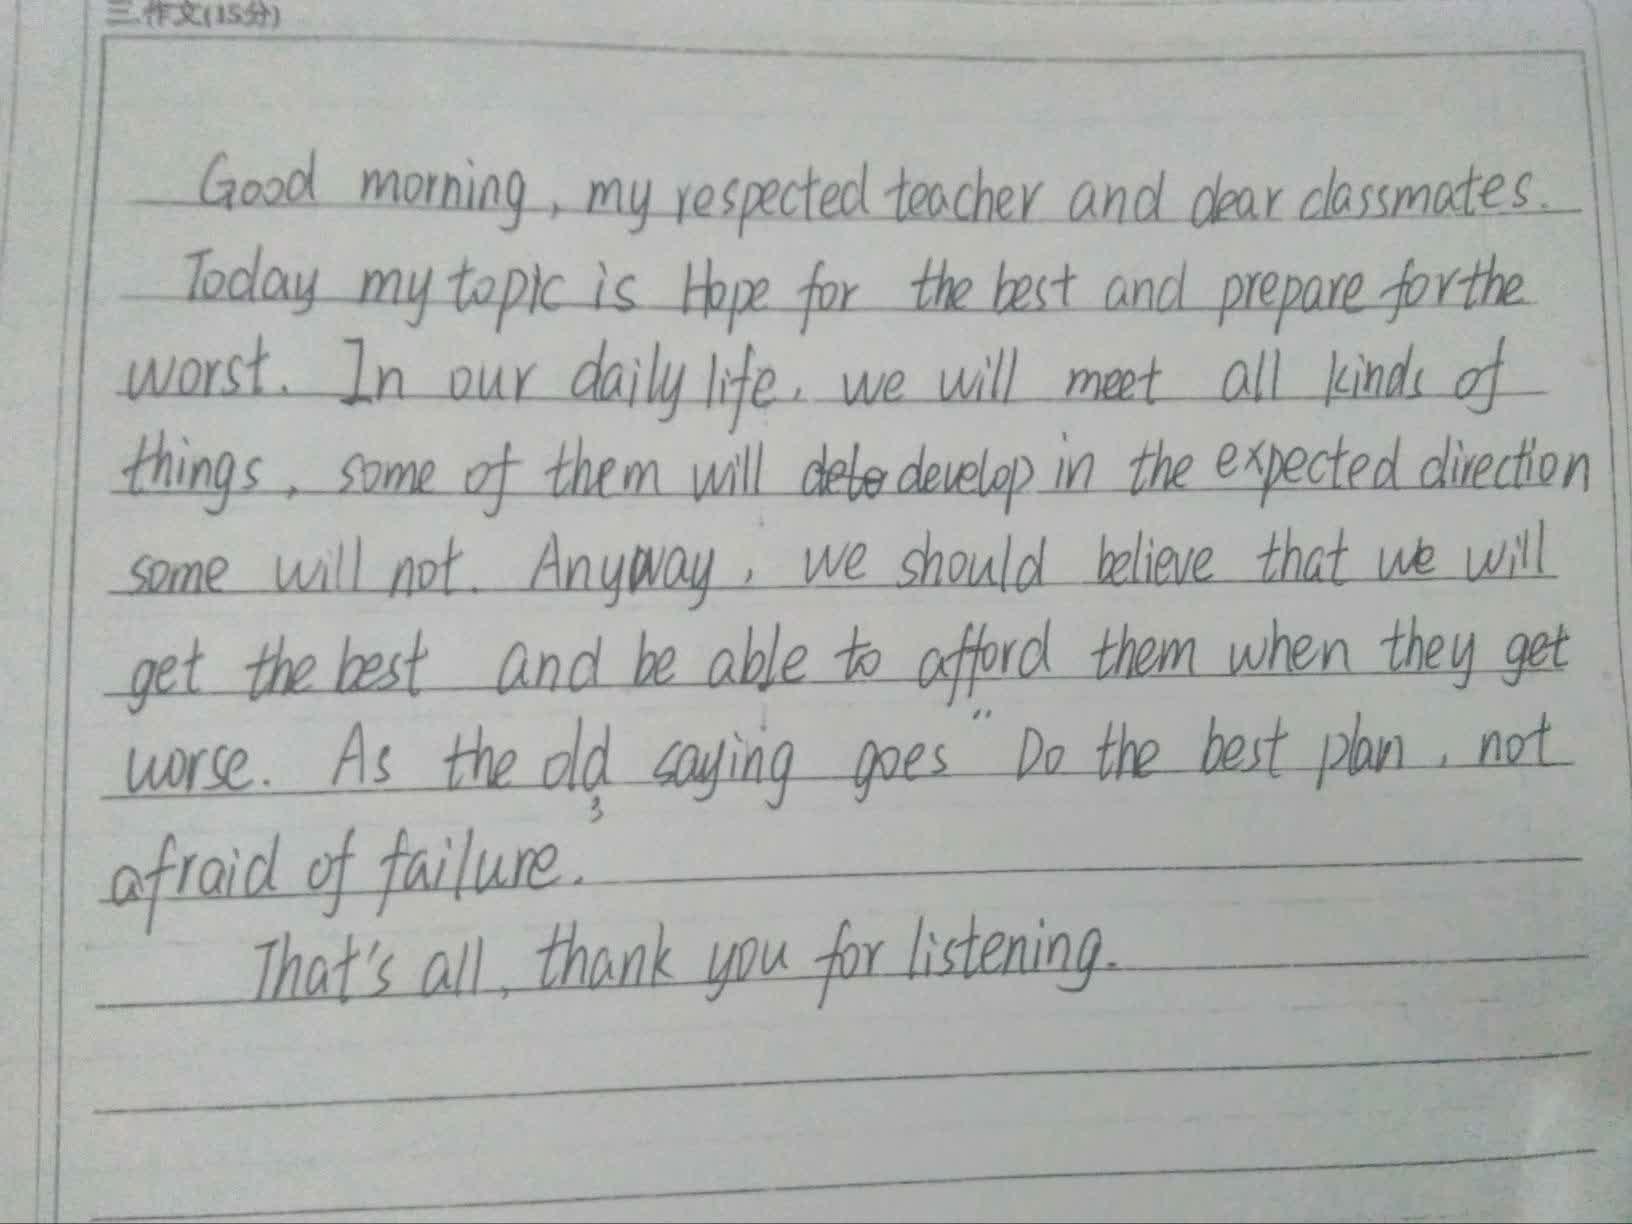 三.作文(15分)
Good morning, my respected teacher and dear classmates.
Today my topic is Hope for the best and prepare for the
worst. In our daily life, we will meet all kinds of
things, some of them will develop in the expected direction
some will not. Anyway, we should believe that we will
get the best and be able to afford them when they get
worse. As the old saying goes " Do the best plan, not
afraid of failure.
That's all, thank you for listening.